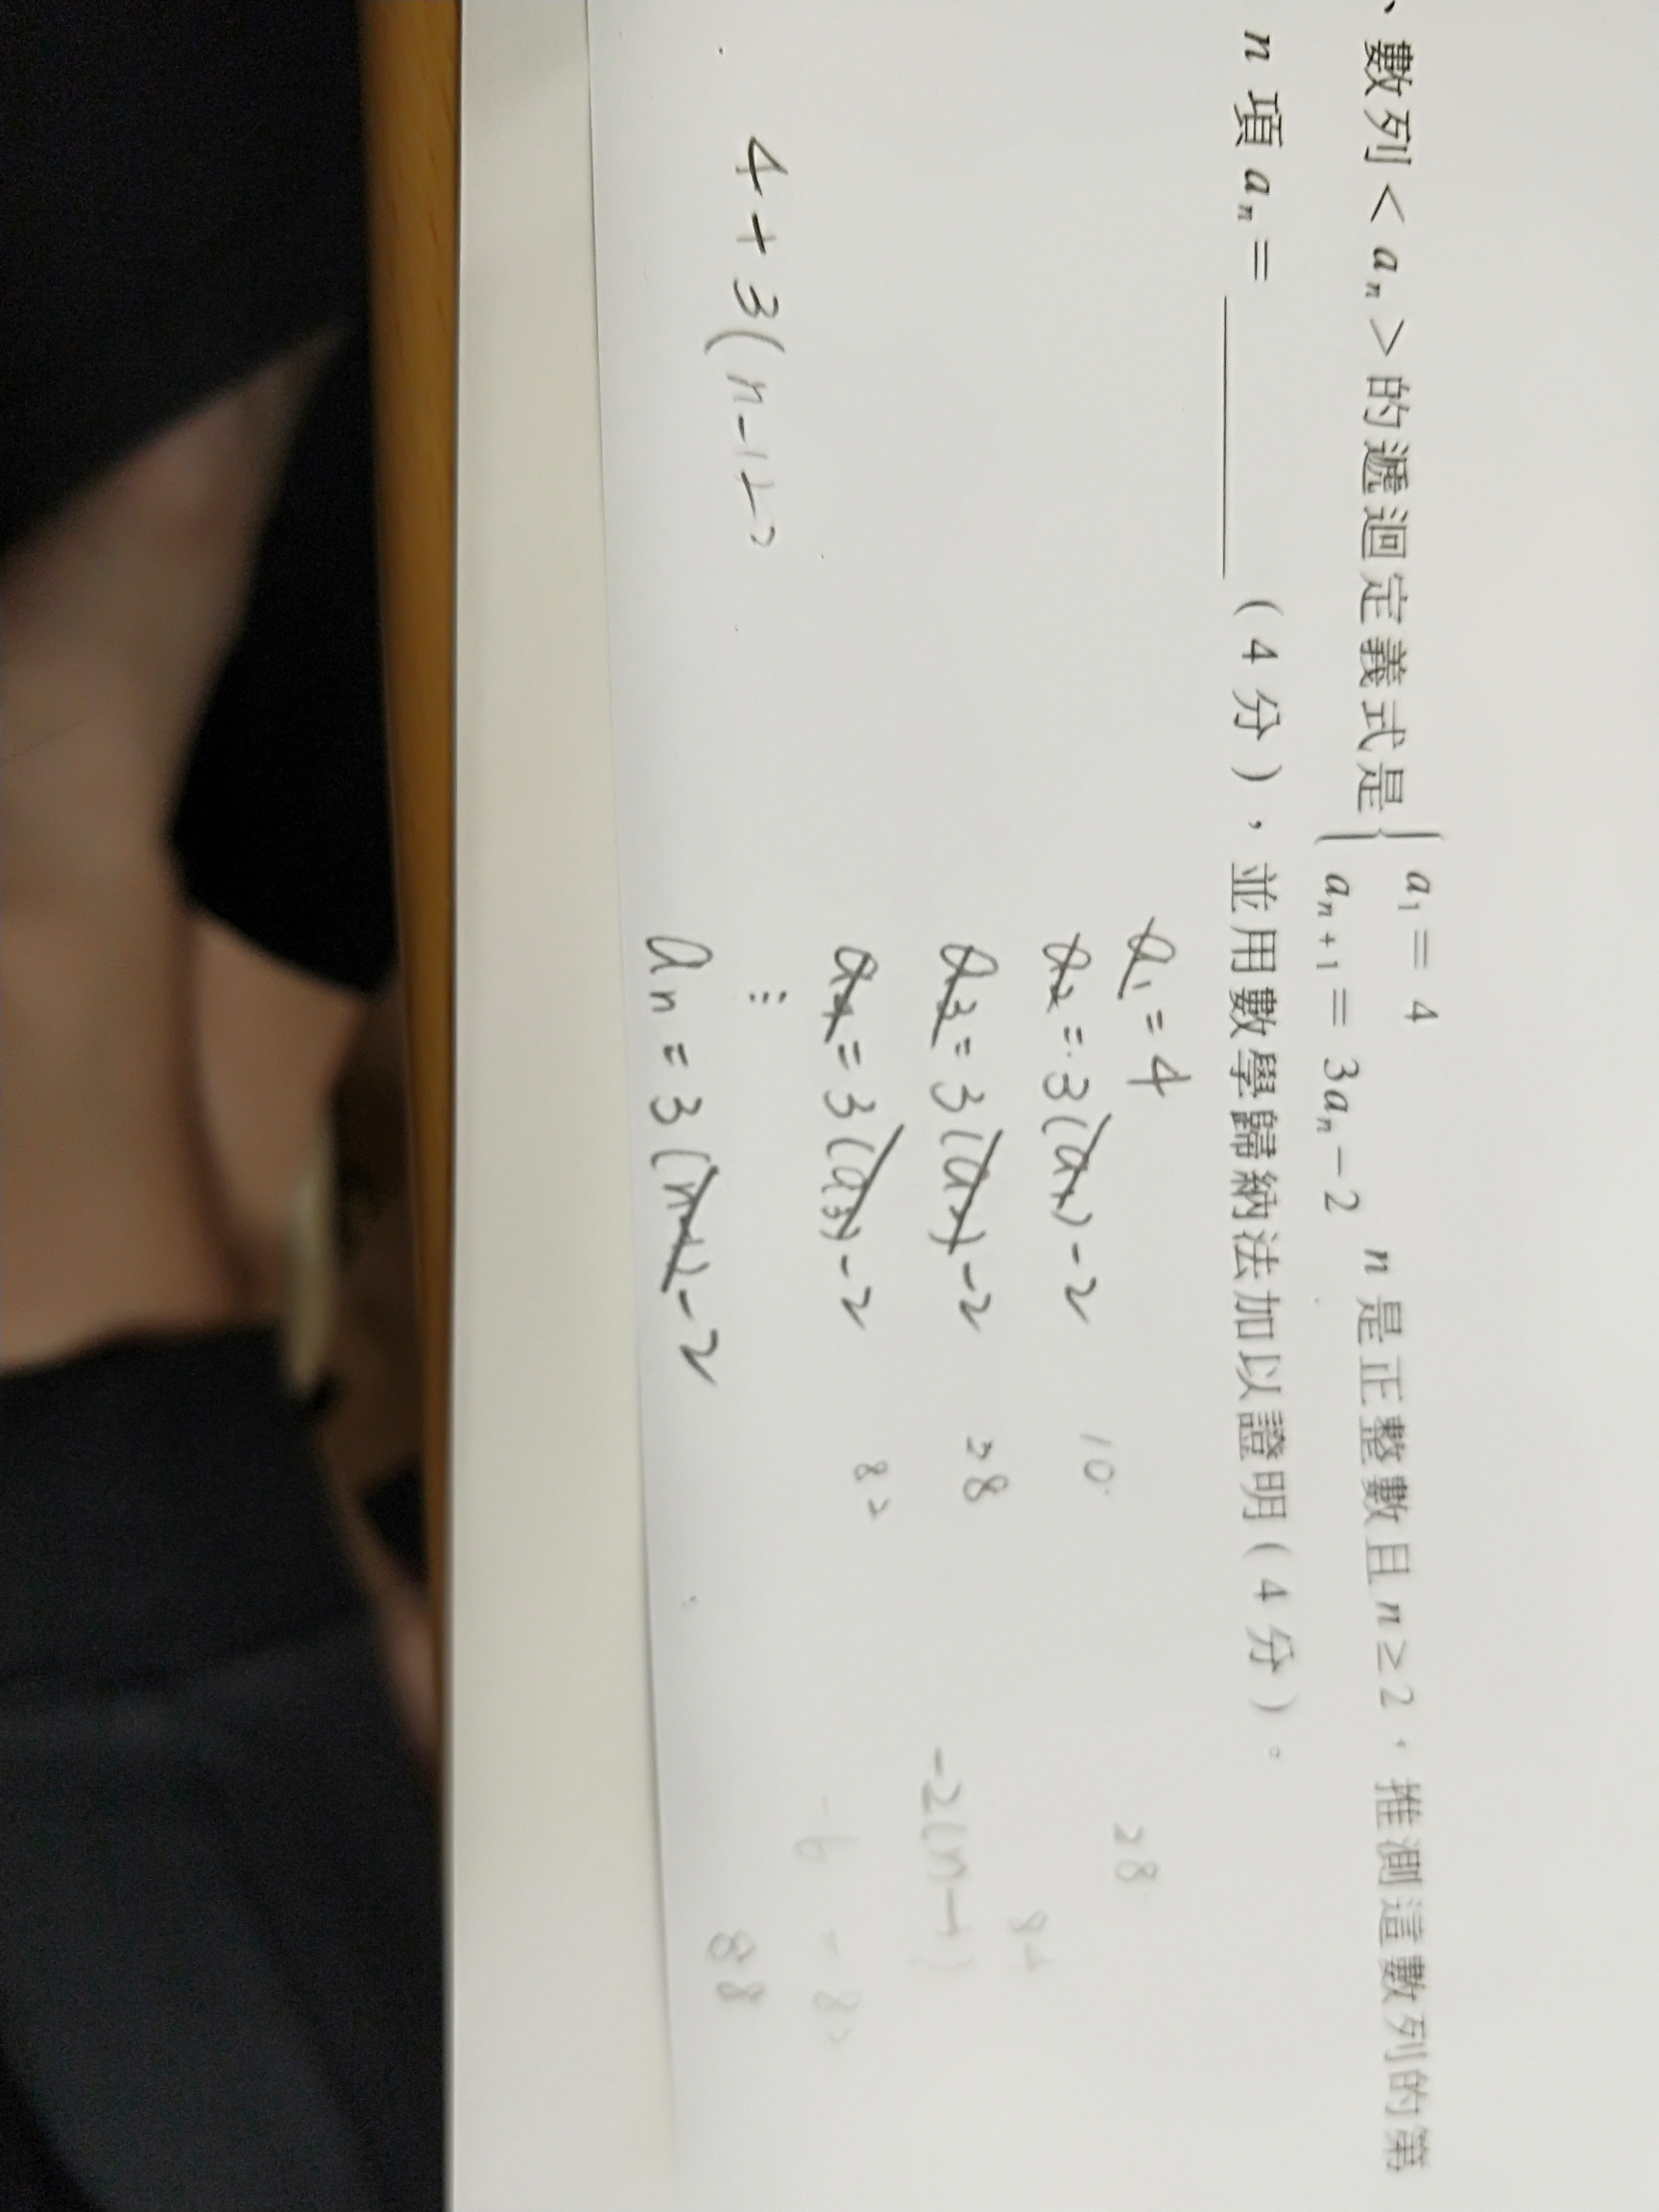 、數列<aₙ>的遞迴定義式是{a₁=4
aₙ₊₁=3aₙ-2 n是正整數且n≥2,推測這數列的第
n項aₙ=______(4分),並用數學歸納法加以證明(4分)。
a₁=4
a₂=3(a₁)-2 10
a₃=3(a₂)-2 28
a₄=3(a₃)-2 82
⋮
aₙ=3(n-1)-2
4+3(n-1)-2
28
84
-2(n-1)
88